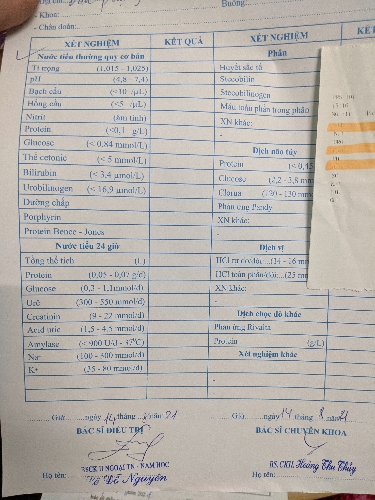 - Khoa:
- Chẩn đoán:
Buồng:
XÉT NGHIỆM KẾT QUẢ XÉT NGHIỆM
Nước tiểu thường quy cơ bản Phân
Tỉ trọng (1,015 - 1,025) Huyết sắc tố
pH (4,8 - 7,4) Stecobilin
Bạch cầu (<10 /µL) Stecobilinogen
Hồng cầu (<5 /µL)
Nitrit (âm tính) XN khác:
Protein (<0,1 g/L)
Glucose (< 0.84 mmol/L) Dịch não tủy
Thể cetonic (< 5 mmol/L) Protein (< 0,45
Bilirubin (< 3,4 µmol/L) Glucose (2,2 - 3,8 mm
Urobilinogen (< 16,9 µmol/L) Clorua (120 - 130 mm
Dưỡng chấp Phản ứng Pandy
Porphyrin XN khác:
Protein Bence - Jones -
Nước tiểu 24 giờ Dịch vị
Tổng thể tích (L)
Protein (0,05 - 0,07 g/d)
Glucose (0,3 - 1,1mmol/d) XN khác:
Urê (300 - 550 mmol/d) -
Creatinin (9 - 22 mmol/d) Dịch chọc dò khác
Acid uric (1,5 - 4,5 mmol/d) Phản ứng Rivalta
Amylase (< 900 U/l - 37°C) Protein (g/L)
Na+ (100 - 300 mmol/d) Xét nghiệm khác
K+ (35 - 80 mmol/d) -
-
Giờ ngày 14 tháng 8 năm 21 Giờ ngày 14 tháng 8
BÁC SĨ ĐIỀU TRỊ BÁC SĨ CHUYÊN KHOA
BSCK II NGOẠI TN - NAM HỌC BS. CKII. Hoàng Thu Thủy
Họ tên: Võ Đỗ Nguyên Họ tên: